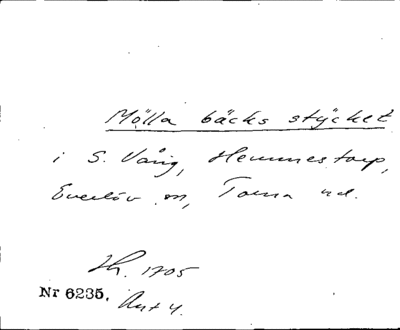 Mölla bäcks stycket
i S. Vång, Hemmestorp,
Everlöv sn, Torna hd.
Th. 1705
Nr 6235. Akt 4.